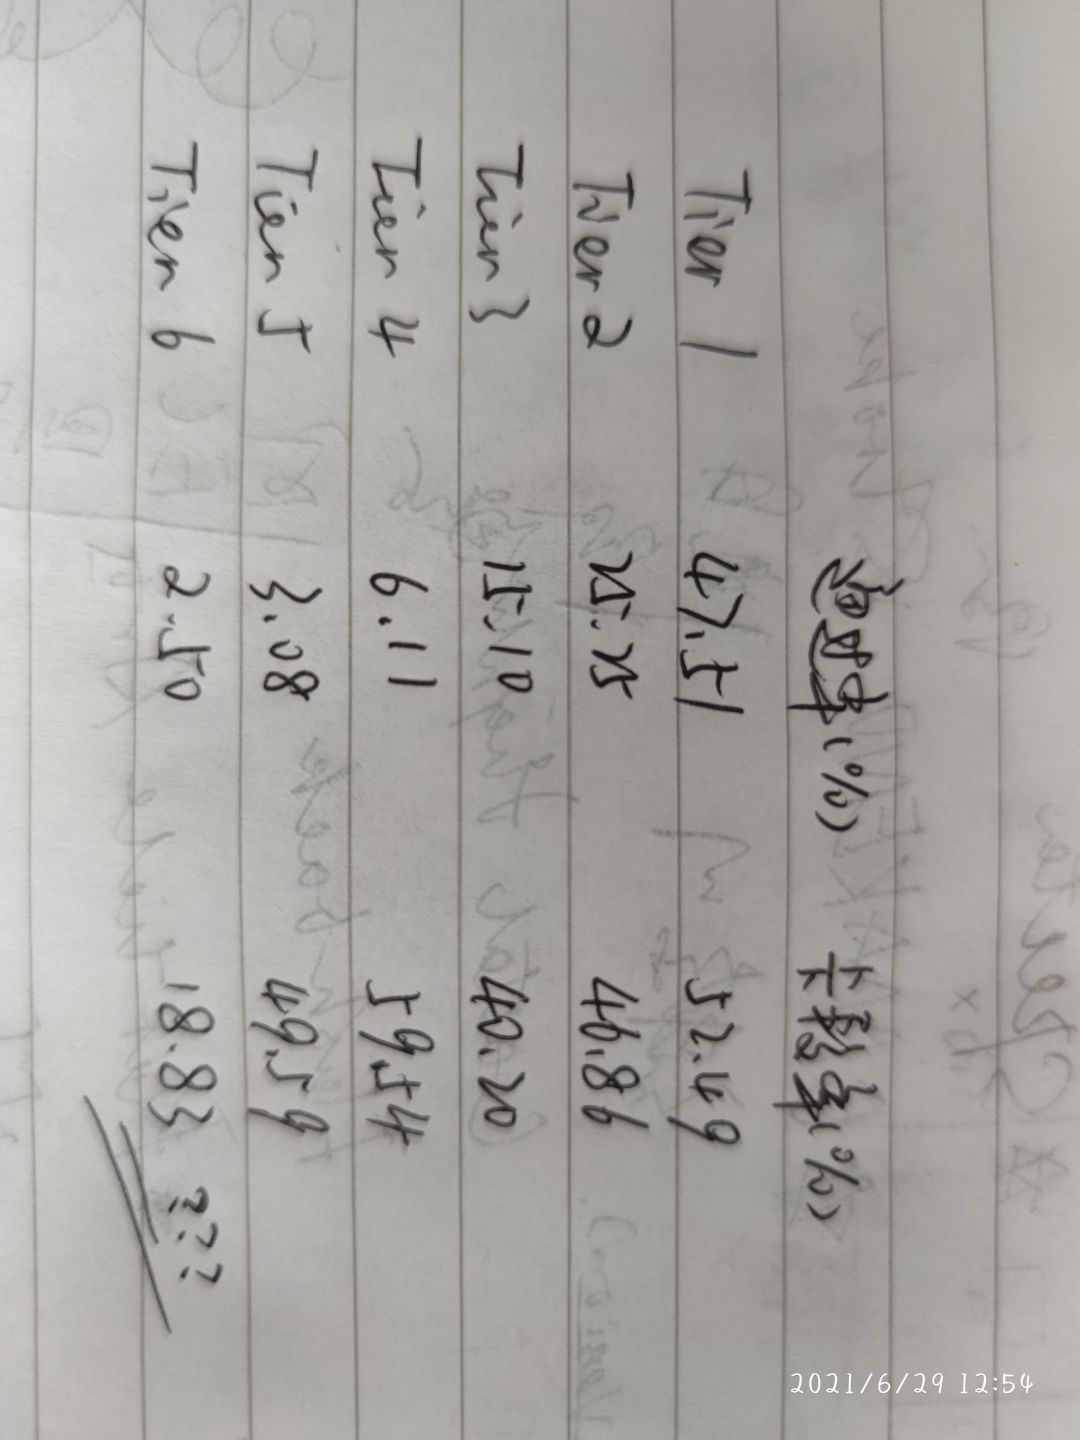 通过率(%)
Tier 1 47.51 52.49
Tier 2 25.25 46.86
Tier 3 15.10 40.20
Tier 4 6.11 59.54
Tier 5 3.08 49.59
Tier 6 2.50 18.83 ???
2021/6/29 12:54